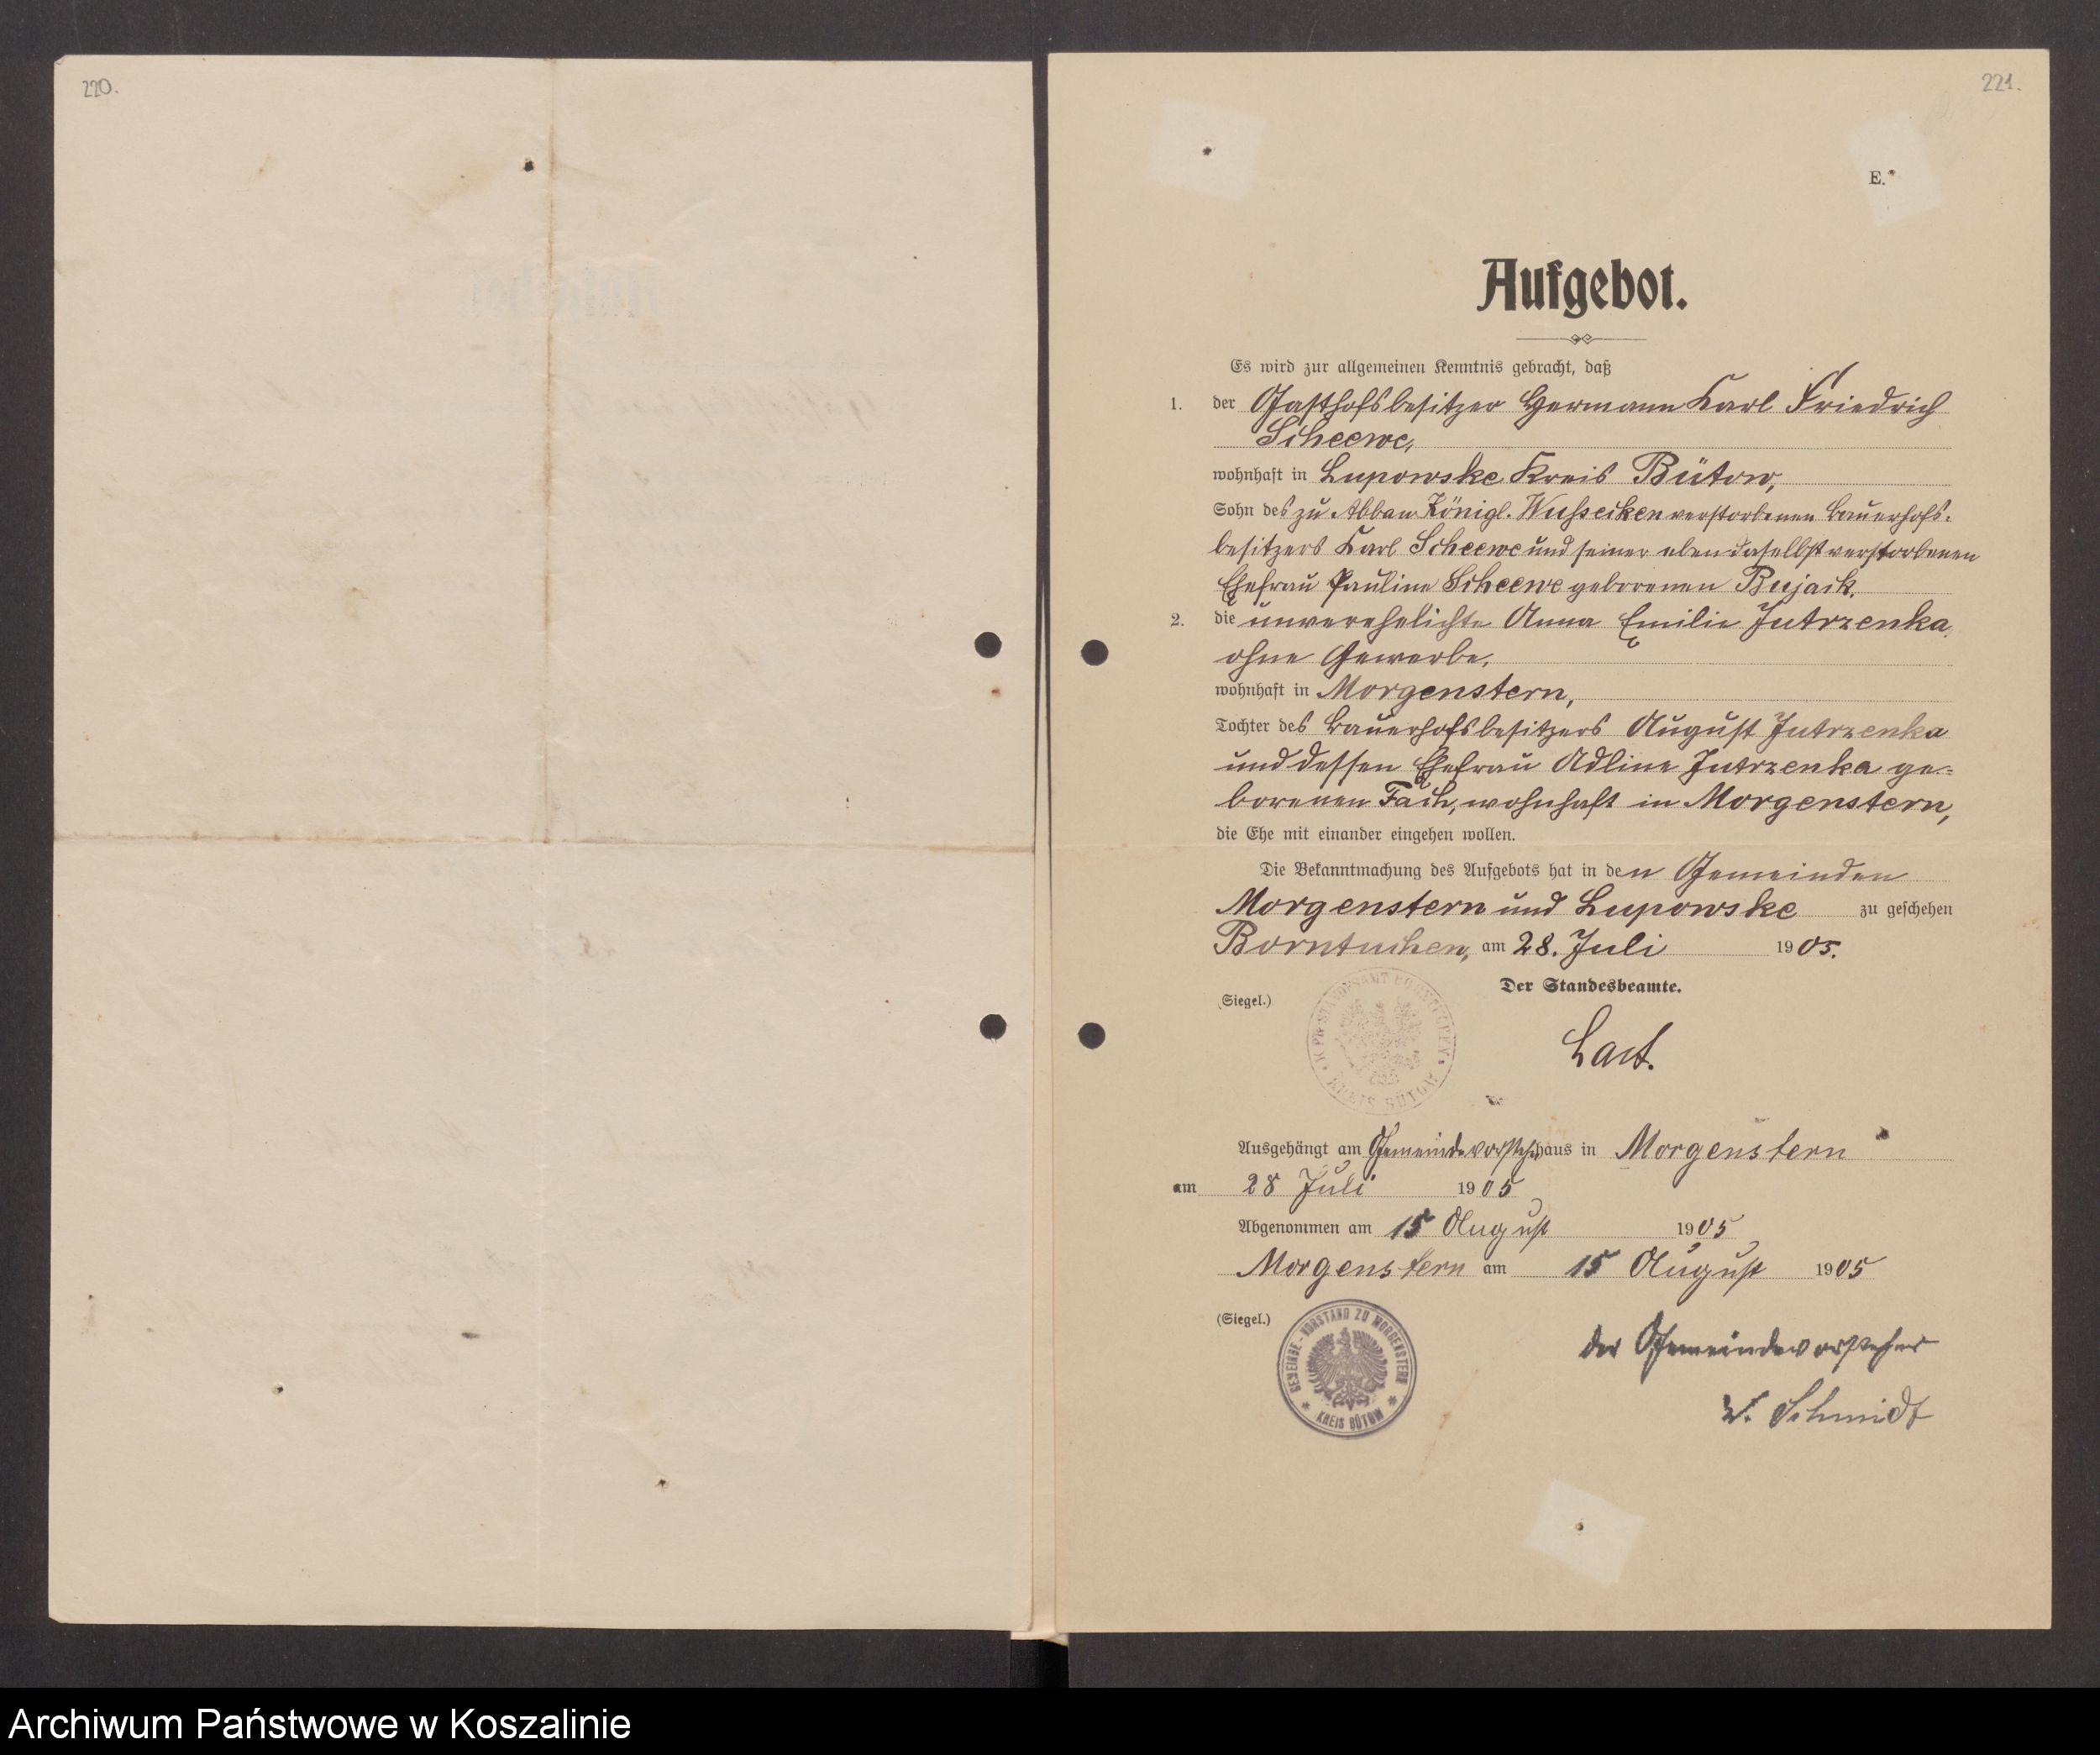 220.
221.
E.
Aufgebot.
Es wird zur allgemeinen Kenntnis gebracht, daß
1. der Gasthofsbesitzer Hermann Karl Friedrich
Scheewe,
wohnhaft in Lupowske Kreis Bütow,
Sohn des zu Abbau Königl. Wussecken verstorbenen Bauerhofs-
besitzers Karl Scheewe und seiner ebendaselbst verstorbenen
Ehefrau Pauline Scheewe geborenen Bujack.
2. die unverehelichte Anna Emilie Jutrzenka,
ohne Gewerbe,
wohnhaft in Morgenstern,
Tochter des Bauerhofsbesitzers August Jutrzenka
und dessen Ehefrau Adline Jutrzenka ge-
borenen Fach, wohnhaft in Morgenstern,
die Ehe mit einander eingehen wollen.
Die Bekanntmachung des Aufgebots hat in den Gemeinden
Morgenstern und Lupowske zu geschehen
Borntuchen, am 28. Juli 1905.
Der Standesbeamte.
(Siegel.)
K. PR. STANDESAMT BORNTUCHEN
KREIS BÜTOW
Ausgehängt am Gemeindevorsteherhaus in Morgenstern
am 28 Juli 1905
Abgenommen am 15 August 1905
Morgenstern am 15 August 1905
(Siegel.)
GEMEINDE-VORSTAND ZU MORGENSTERN
* KREIS BÜTOW *
der Gemeindevorsteher
Schmidt
Archiwum Państwowe w Koszalinie